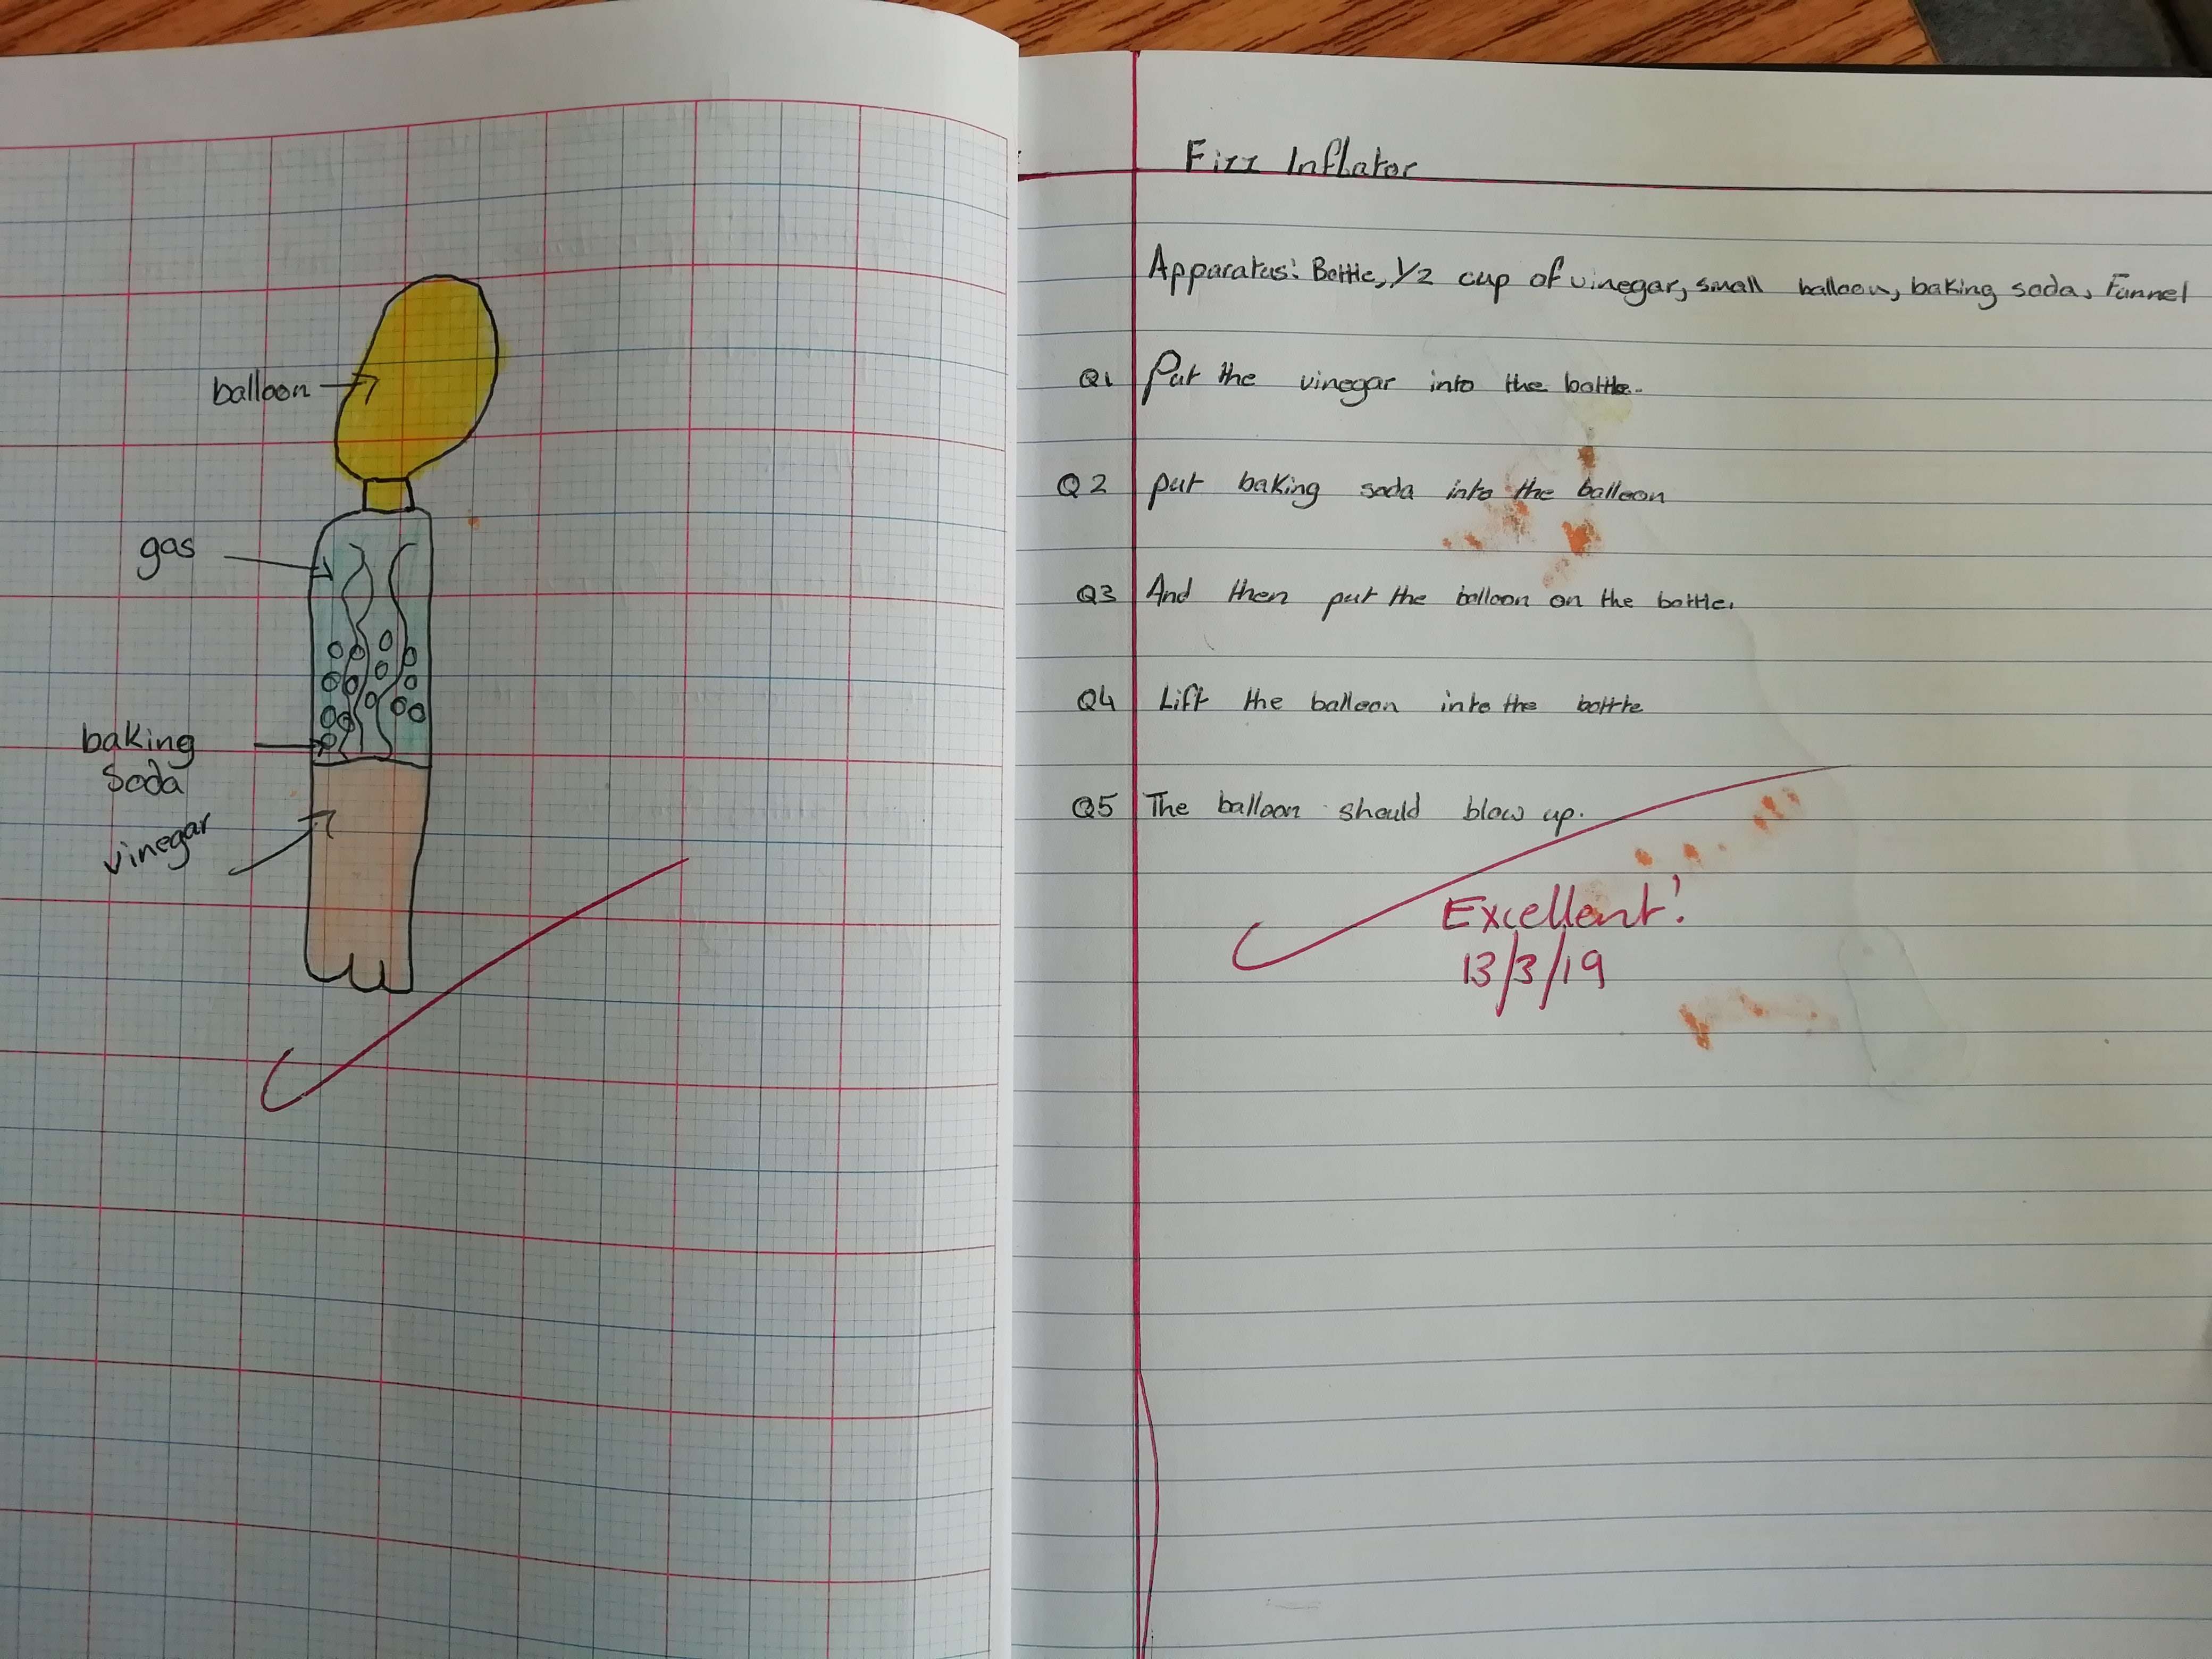 balloon
gas
baking
soda
vinegar
Fizz Inflator
Apparatus: Bottle, 1/2 cup of vinegar, small balloon, baking soda, Funnel
Q1 Put the vinegar into the bottle.
Q2 put baking soda into the balloon
Q3 And then put the balloon on the bottle.
Q4 Lift the balloon into the bottle
Q5 The balloon should blow up.
Excellent!
13/3/19